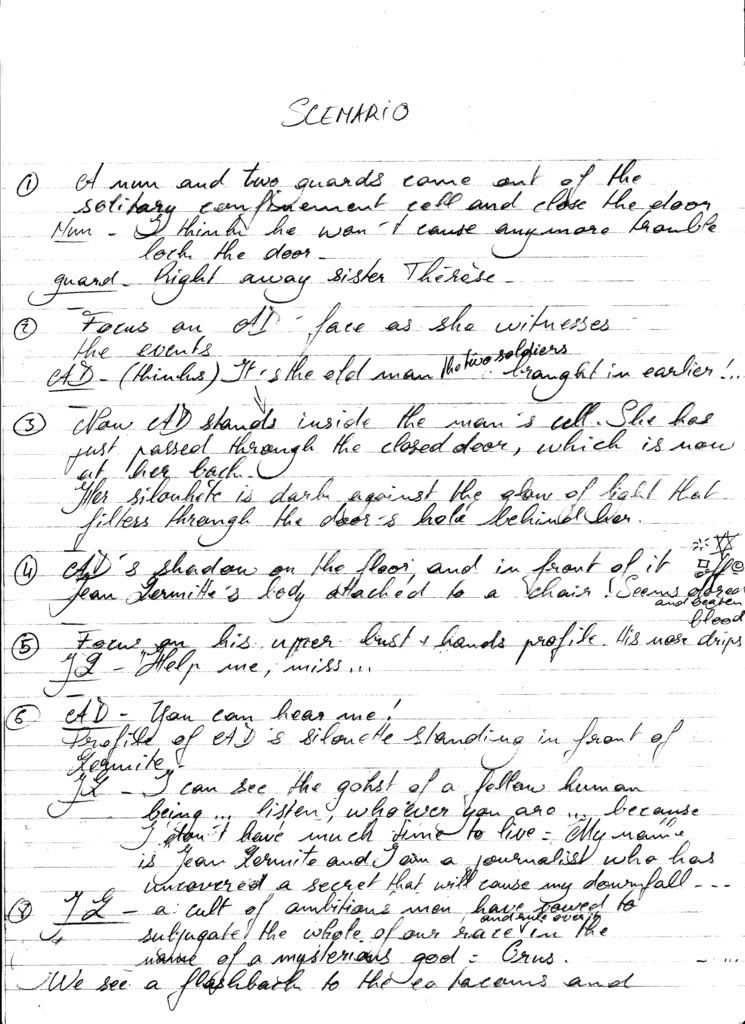 SCENARIO
① A nun and two guards come out of the
solitary confinement cell and close the door
Nun - I think he won't cause anymore trouble
lock the door -
guard - Right away sister Thérèse -
② Focus on AD face as she witnesses
the events
AD - (thinks) It's the old man the two soldiers brought in earlier!...
③ Now AD stands inside the man's cell. She has
just passed through the closed door, which is now
at her back.
Her silouhete is dark against the glow of light that
filters through the door's hole behind her.
④ AD's shadow on the floor, and in front of it
Jean Lermitte's body attached to a chair! Seems
and beaten
blood
⑤ Focus on his upper bust + hands profile. His nose drips
JL - Help me, miss...
⑥ AD - You can hear me!
Profile of AD's silouette standing in front of
Lermite -
JL - I can see the gohst of a fellow human
being... listen, whoever you are... because
I don't have much time to live = My name
is Jean Lermite and I am a journalist who has
uncovered a secret that will cause my downfall ---
⑧ JL - a cult of ambitious men have vowed to
subjugate and rule over the whole of our race in the
name of a mysterious god = Orus.
We see a flashback to the catacoms and